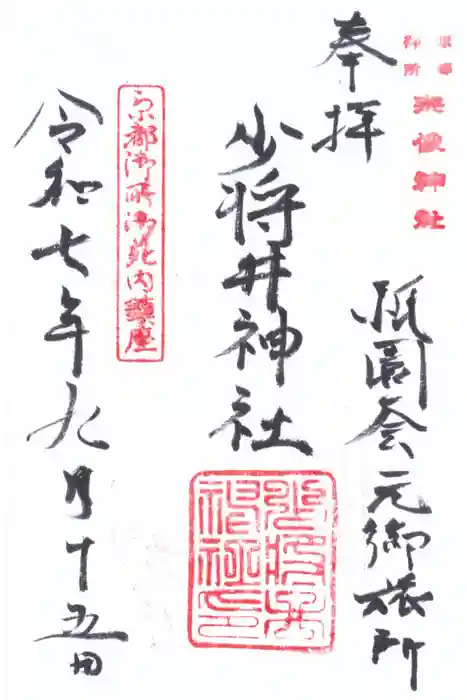 京都
御所
宗像神社
奉拝
祇園会元御旅所
少将井神社
京都御所御苑内鎮座
令和七年九月十五日